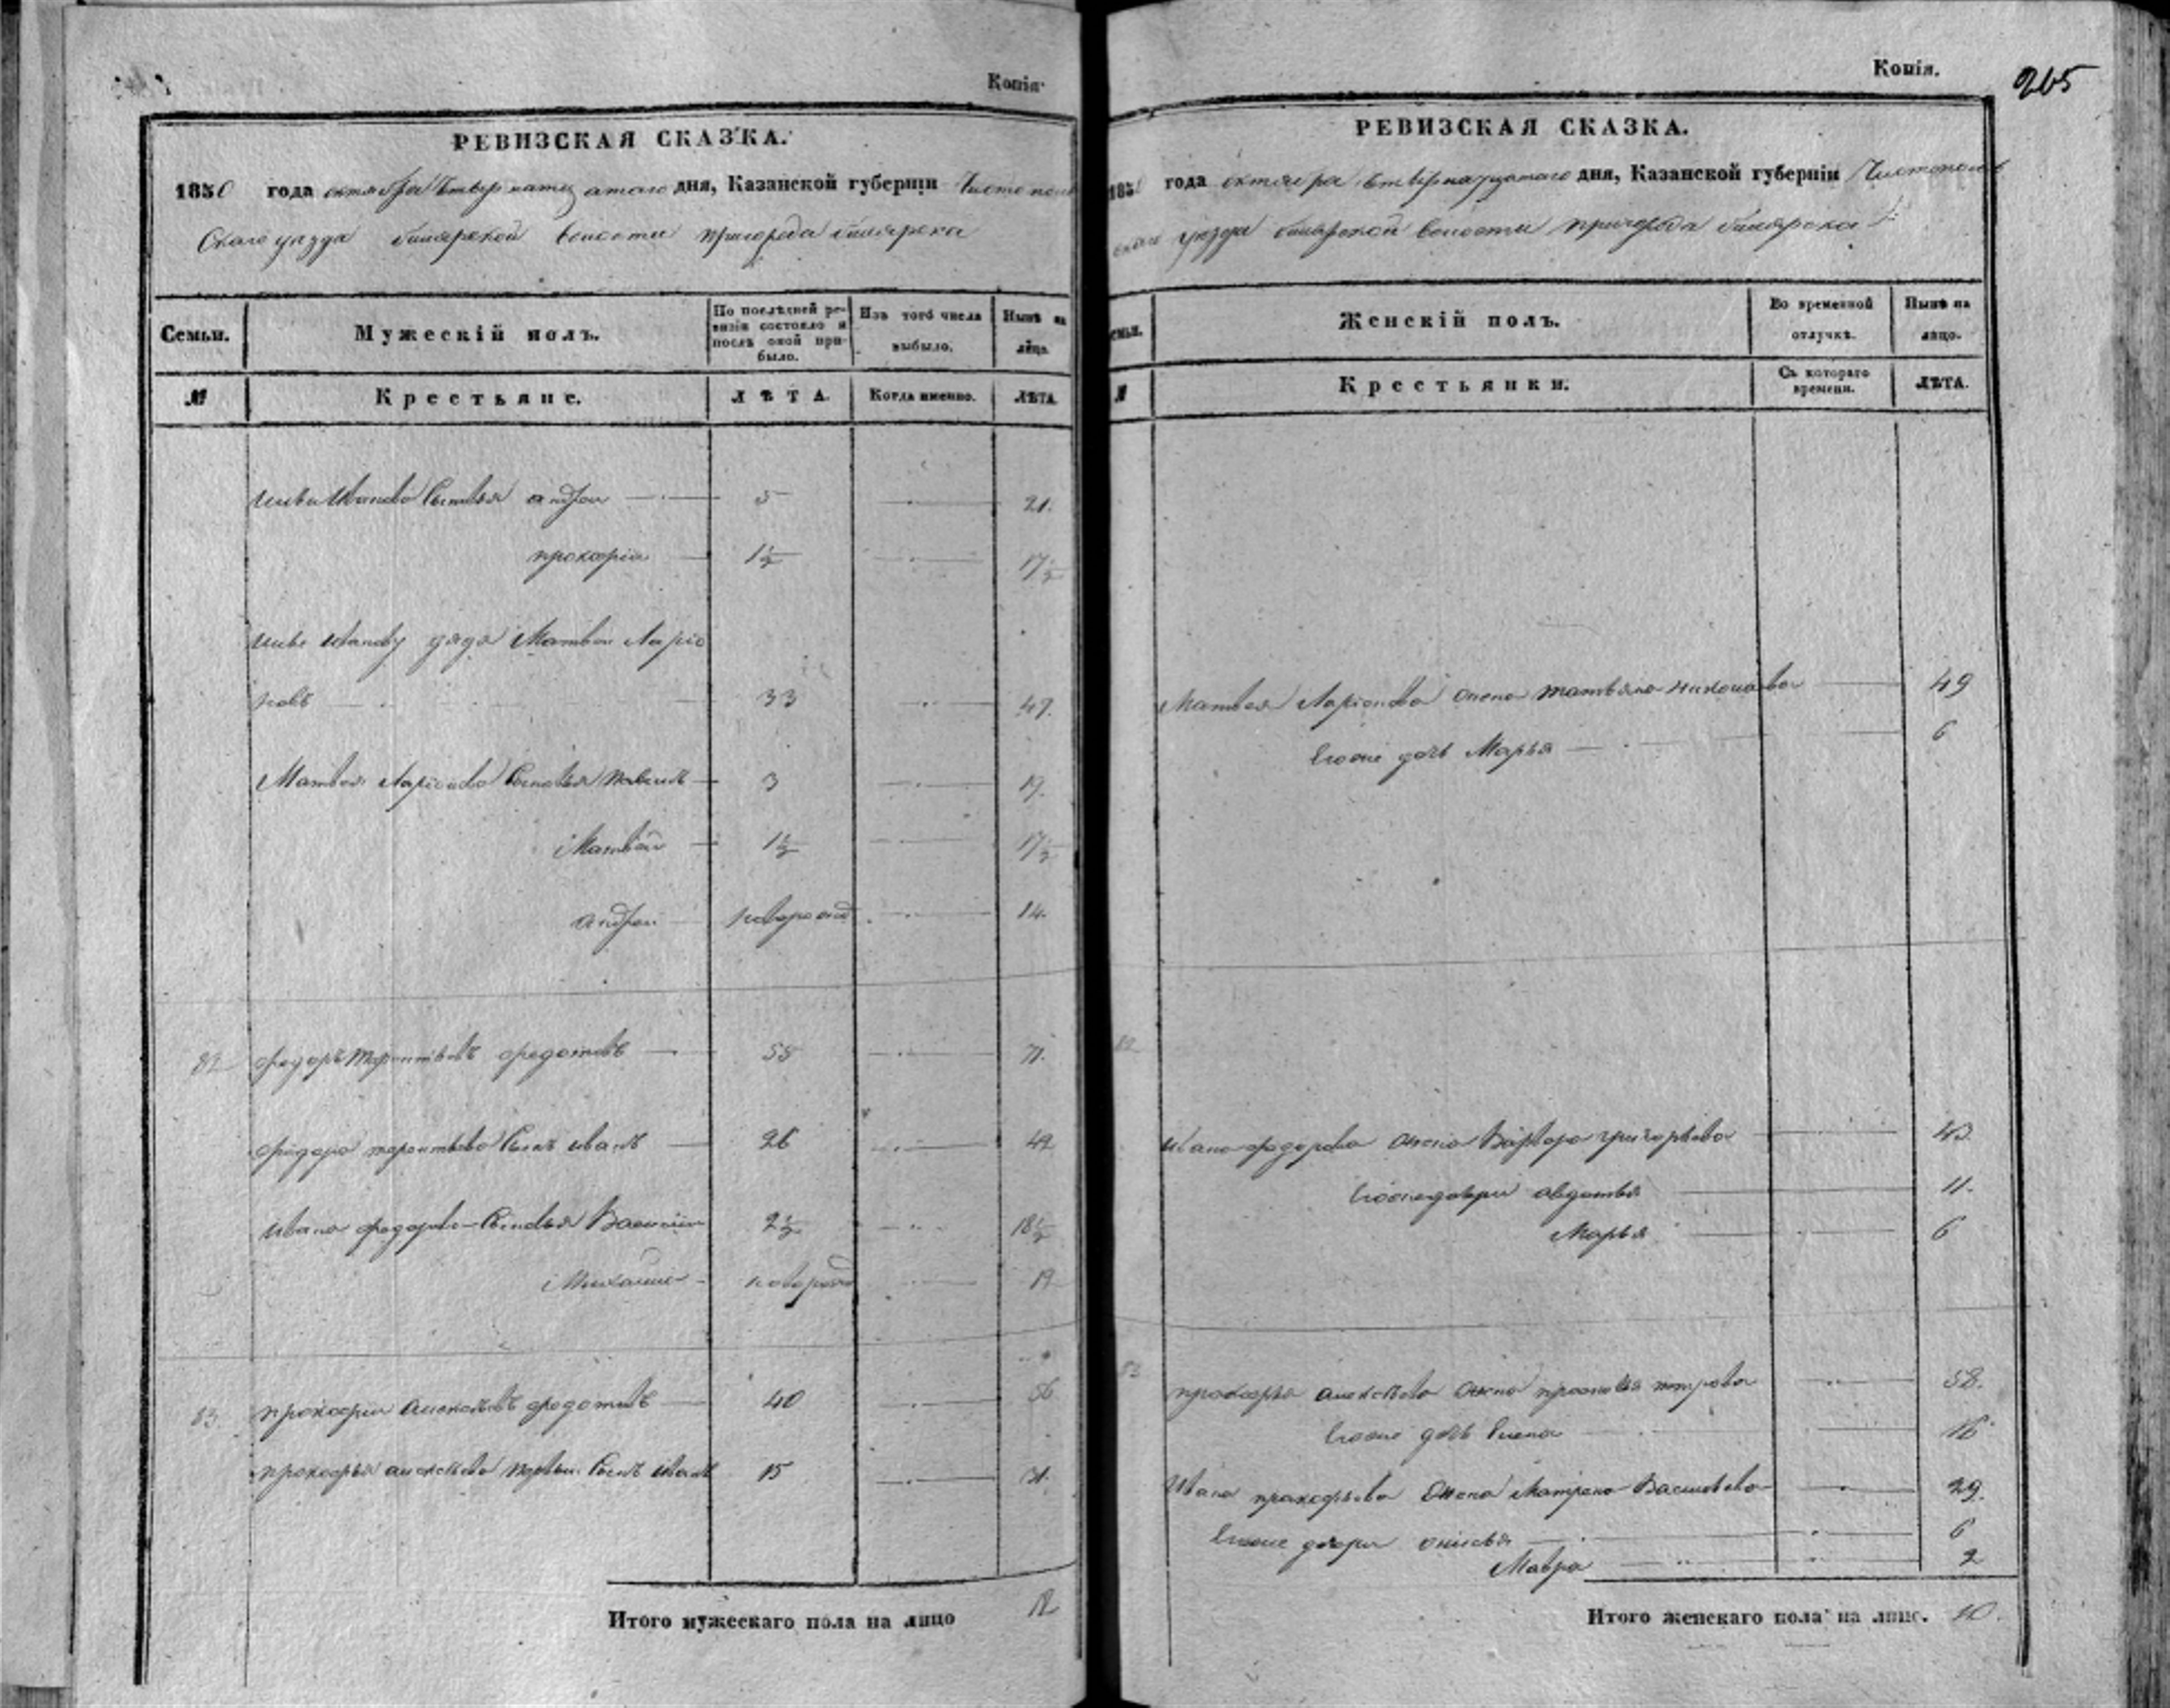 Копія
РЕВИЗСКАЯ СКАЗКА.
1850 года октября четвернатцатаго дня, Казанской губерніи Чистополь
скаго уезда билярской волости пригорода билярска
Семьи.
Мужескій полъ.
По послѣдней ре-
визіи состояло и
послѣ оной при-
было.
Изъ того числа
выбыло.
Нынѣ на
лицо.
№
Крестьяне.
ЛѢТА.
Когда именно.
ЛѢТА.
Иванова сыновья андреи 5 21.
прокофіи 1½ 17½
Иванову дядя Матвеи Ларіо
новъ 33 49.
Матвея Ларіонова сыновья 3 19.
Матвей 1½ 17½
андреи новорожд 14.
82 федоръ терентьевъ федотовъ 55 71.
федора терентьева сынъ иванъ 26 42
ивана федорова сыновья Василіи 2½ 18½
Михаило новорожд 12
83. прокофеи алексеевъ федотовъ 40 56.
прокофья алексеева первыи сынъ иванъ 15 31.
Итого мужескаго пола на лицо 12
Копія.
265
РЕВИЗСКАЯ СКАЗКА.
1850 года октября четвернатцатаго дня, Казанской губерніи Чистополь
скаго уезда билярской волости пригорода билярска
семьи.
Женскій полъ.
Во временной
отлучкѣ.
Нынѣ на
лицо.
№
Крестьянки.
Съ котораго
времени.
ЛѢТА.
Матвея Ларіонова жена татьяна николаева 49
Егоже дочь Марья 6
82
ивана федорова жена Варвара григорьева 43
Егоже дочери авдотья 11.
Марья 6
83
прокофья алексеева жена прасковья петрова 58.
Егоже дочь Елена 16
Ивана прокофьева жена Матрена Васильева 29.
Егоже дочери 6
Мавра 2
Итого женскаго пола на лицо. 10.